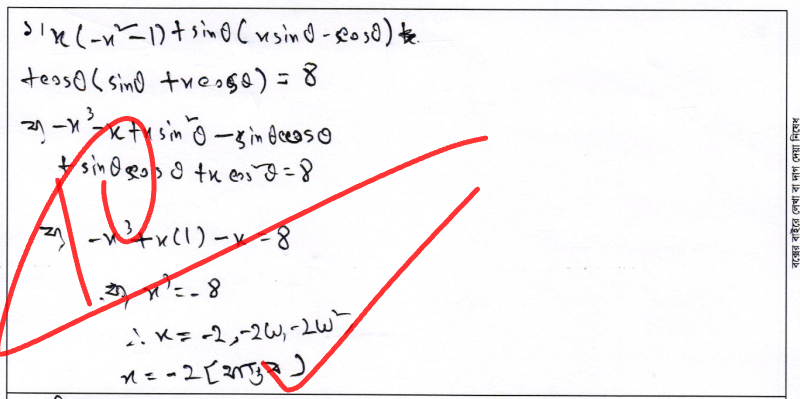 বা, x(-x²-1)+sinθ(xsinθ-cosθ)
+cosθ(sinθ+xcosθ)=8
বা, -x³-x+xsin²θ-sinθcosθ
+sinθcosθ+xcos²θ=8
বা, -x³+x(1)-x=8
বা, x³=-8
∴ x=-2,-2ω,-2ω²
x=-2 [বাস্তব]
বক্সের বাইরে লেখা বা দাগ দেয়া নিষেধ